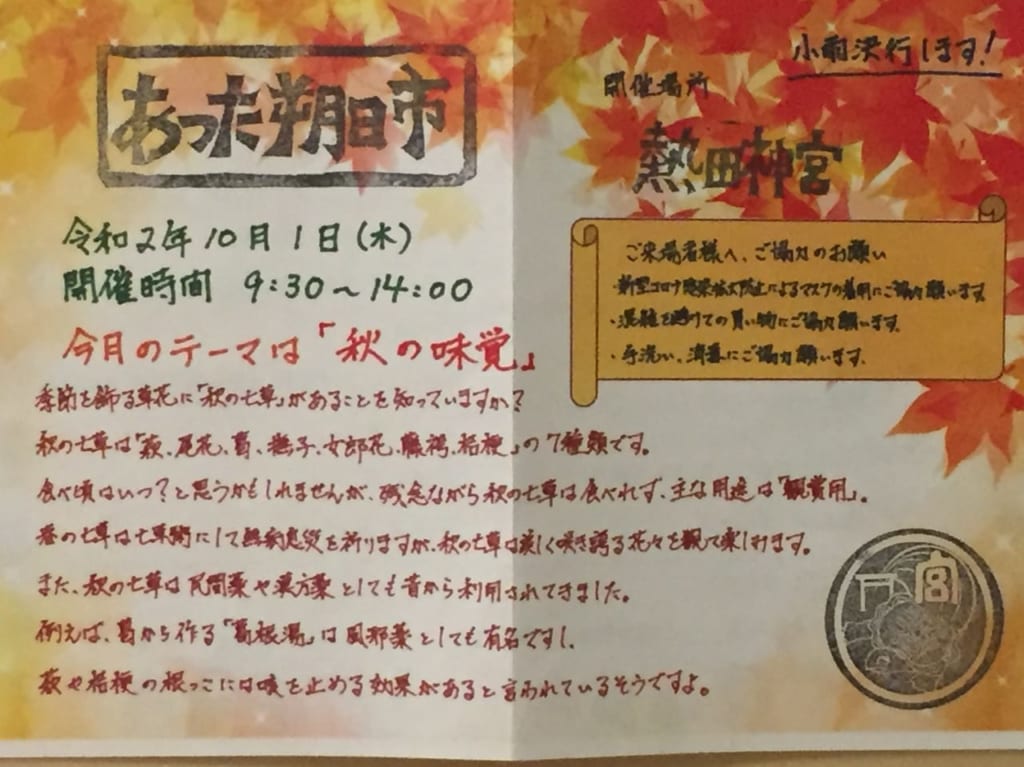 あつた朔日市
令和2年10月1日(木)
開催時間 9:30〜14:00
今月のテーマは「秋の味覚」
小雨決行します!
開催場所
熱田神宮
ご来場者様へ、ご協力のお願い
・新型コロナ感染拡大防止によるマスクの着用にご協力願います
・混雑を避けての買い物にご協力願います。
・手洗い、消毒にご協力願います。
季節を飾る草花に「秋の七草」があることを知っていますか?
秋の七草は「萩、尾花、葛、撫子、女郎花、藤袴、桔梗」の7種類です。
食べ頃はいつ?と思うかもしれませんが、残念ながら秋の七草は食べれず、主な用途は「観賞用」。
春の七草は七草粥にして無病息災を祈りますが、秋の七草は美しく咲き誇る花々を観て楽しみます。
また、秋の七草は民間薬や漢方薬としても昔から利用されてきました。
例えば、葛から作る「葛根湯」は風邪薬としても有名ですし、
萩や桔梗の根っこには咳を止める効果があると言われているそうですよ。
宮